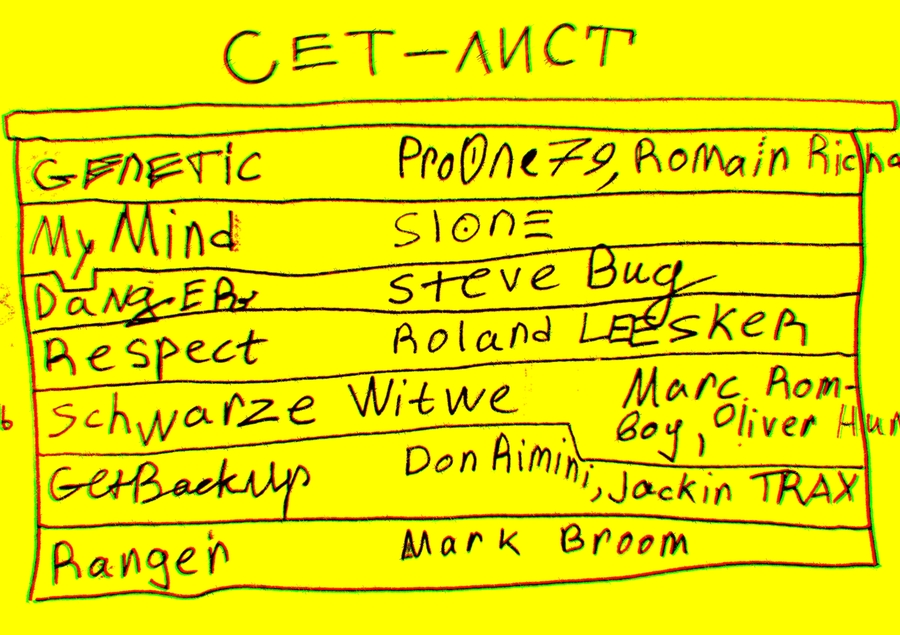 СЕТ-ЛИСТ
GENETIC ProOne79, Romain Richa
My Mind SIONE
DANGER Steve Bug
Respect Roland LEESKER
Schwarze Witwe Marc Rom-
Boy, Oliver Hun
GetBackUp Don Aimini, Jackin TRAX
Ranger Mark Broom